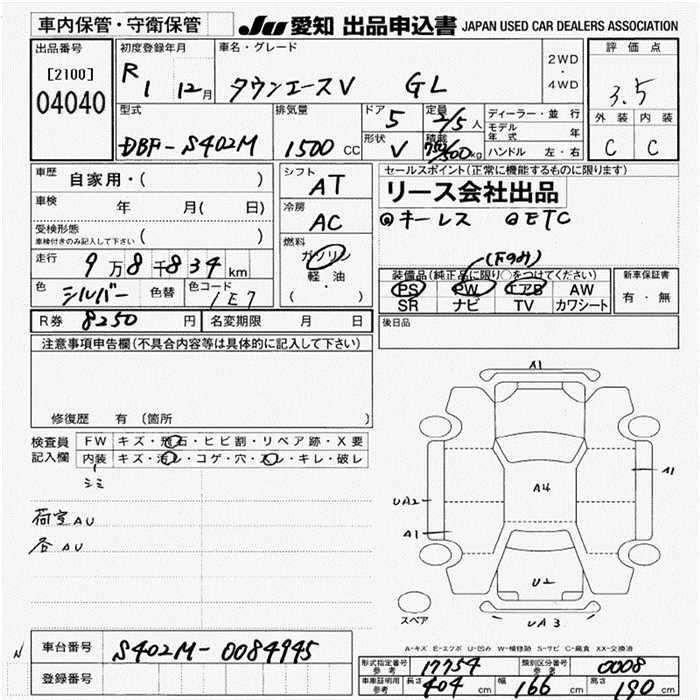 車内保管・守衛保管
JU 愛知 出品申込書 JAPAN USED CAR DEALERS ASSOCIATION
出品番号
[2100]
04040
初度登録年月
R1 12月
車名・グレード
タウンエースV GL
2WD
・
4WD
評価点
3.5
外装 内装
C C
型式
DBF-S402M
排気量
1500 CC
ドア
5
定員
2/5人
形状
V
積載
750/500kg
ディーラー・並行
モデル年式 年
ハンドル 左・右
車歴
自家用・( )
車検 年 月( 日)
受検形態
車検付きのみ記入して下さい ( )
走行
9万8千834km
色
シルバー
色替
色コード
1E7
シフト
AT
冷房
AC
燃料
ガソリン
軽・油
( ・ )
セールスポイント(正常に機能するものに限ります)
リース会社出品
◎キーレス ◎ETC
(Fのみ)
装備品(純正品に限り○をつけてください)
PS PW エアB AW
SR ナビ TV カワシート
新車保証書
有・無
R券 8250円
名変期限 月 日
後日品
注意事項申告欄(不具合内容等は具体的に記入して下さい)
修復歴 有 〔箇所 〕
検査員記入欄
FW キズ・飛石・ヒビ割・リペア跡・X要
内装 キズ・汚レ・コゲ・穴・スレ・キレ・破レ
シミ
荷室AU
各AU
A1
A1
UA2
A4
A1
U2
スペア
UA3
A-キズ E-エクボ U-凹み W-補修跡 S-サビ C-腐食 XX-交換済
N
車台番号 S402M-0084945
登録番号
型式指定番号 参考 17754
類別区分番号 参考 0008
車庫証明用 参考 長さ 404 cm 幅 166 cm 高さ 190 cm